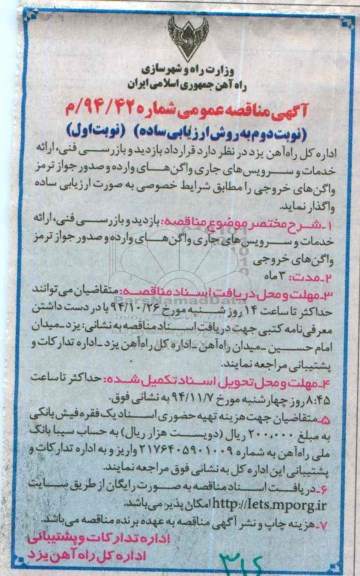 وزارت راه و شهرسازی
راه آهن جمهوری اسلامی ایران
آگهی مناقصه عمومی شماره ۹۴/۴۲/م
(نوبت دوم به روش ارزیابی ساده) (نوبت اول)
اداره کل راه‌آهن یزد در نظر دارد قرارداد بازدید و بازرسی فنی، ارائه
خدمات و سرویس‌های جاری واگن‌های وارده و صدور جواز ترمز
واگن‌های خروجی را مطابق شرایط خصوصی به صورت ارزیابی ساده
واگذار نماید.
۱-شرح مختصر موضوع مناقصه: بازدید و بازرسی فنی، ارائه
خدمات و سرویس‌های جاری واگن‌های وارده و صدور جواز ترمز
واگن‌های خروجی
۲-مدت: ۳ ماه
۳-مهلت و محل دریافت اسناد مناقصه: متقاضیان می‌توانند
حداکثر تا ساعت ۱۴ روز شنبه مورخ ۹۴/۱۰/۲۶ با در دست داشتن
معرفی‌نامه کتبی جهت دریافت اسناد مناقصه به نشانی: یزد-میدان
امام حسین-میدان راه‌آهن-اداره کل راه‌آهن یزد-اداره تدارکات و
پشتیبانی مراجعه نمایند.
۴-مهلت و محل تحویل اسناد تکمیل شده: حداکثر تا ساعت
۸:۴۵ روز چهارشنبه مورخ ۹۴/۱۱/۷ به نشانی فوق.
۵-متقاضیان جهت هزینه تهیه حضوری اسناد یک فقره فیش بانکی
به مبلغ ۲۰۰,۰۰۰ ریال (دویست هزار ریال) به حساب سیبا بانک
ملی راه‌آهن به شماره ۲۱۷۶۴۰۵۹۰۱۰۰۹ واریز و به اداره تدارکات و
پشتیبانی این اداره کل به نشانی فوق مراجعه نمایند.
۶-دریافت اسناد مناقصه به صورت رایگان از طریق سایت
http://Iets.mporg.ir امکان پذیر می‌باشد.
۷-هزینه چاپ و نشر آگهی مناقصه به عهده برنده مناقصه می‌باشد.
اداره تدارکات و پشتیبانی
اداره کل راه آهن یزد